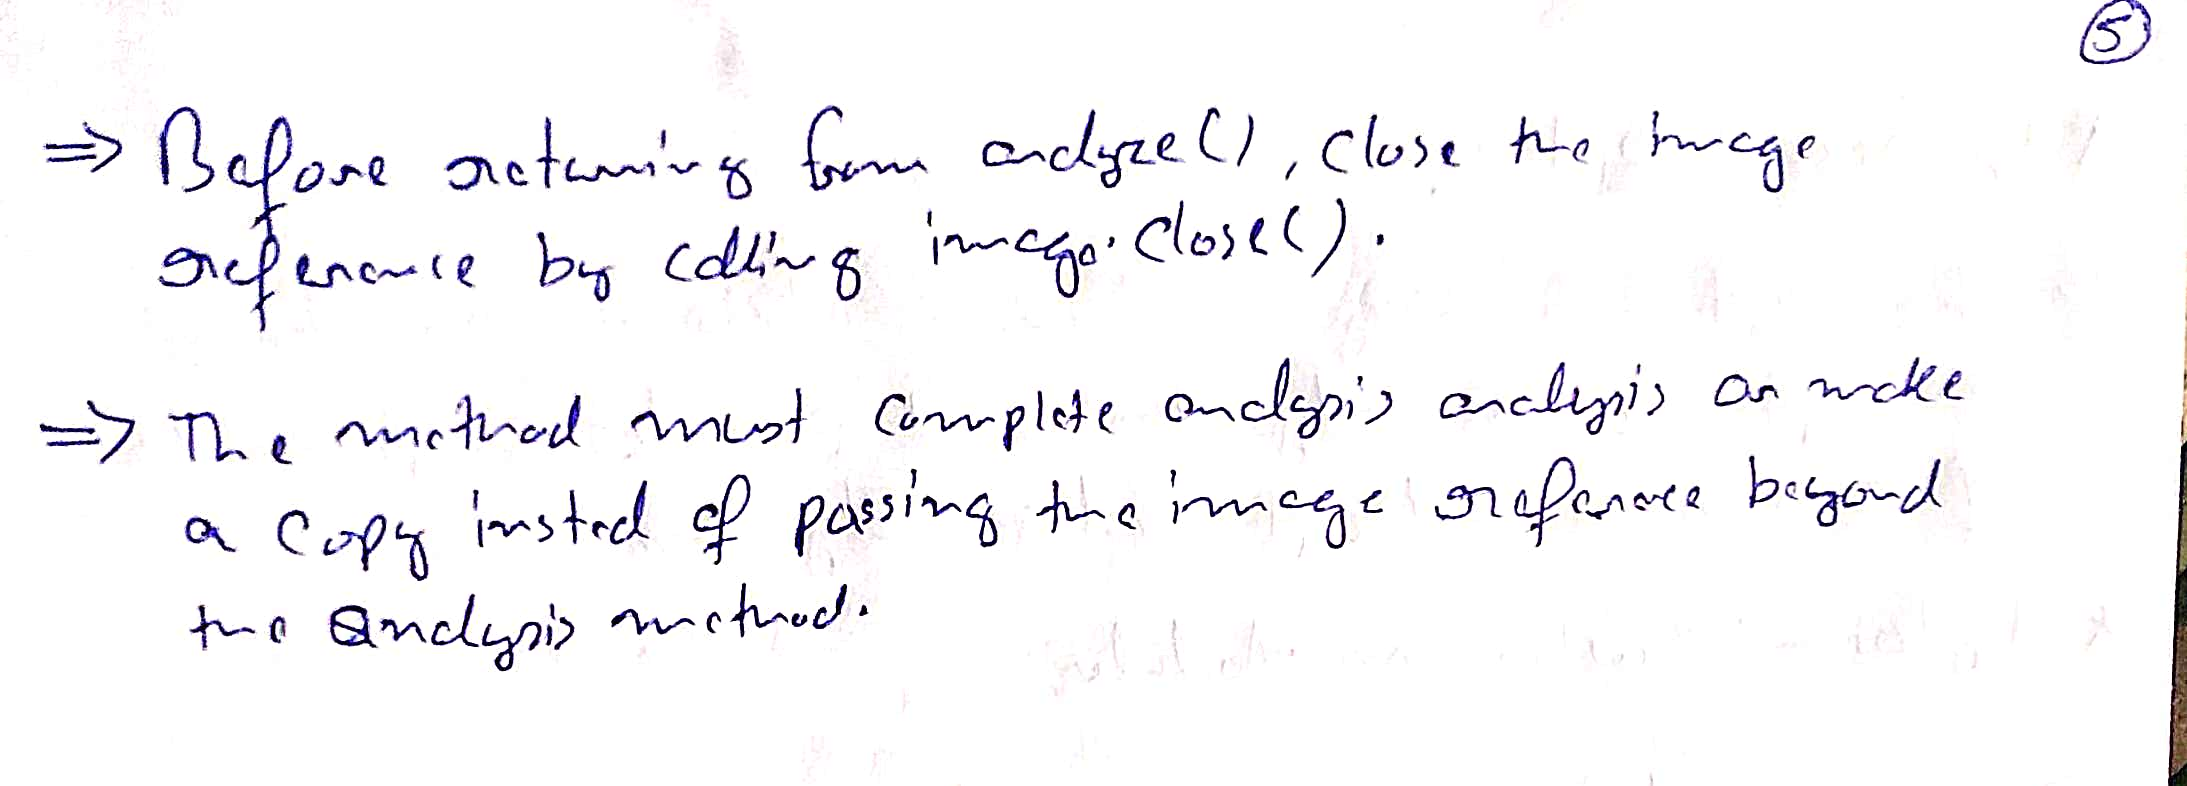 5
=> Before returning from analyze(), close the image
reference by calling image.close().
=> The method must complete analysis analysis or make
a copy insted of passing the image reference beyond
the analysis method.